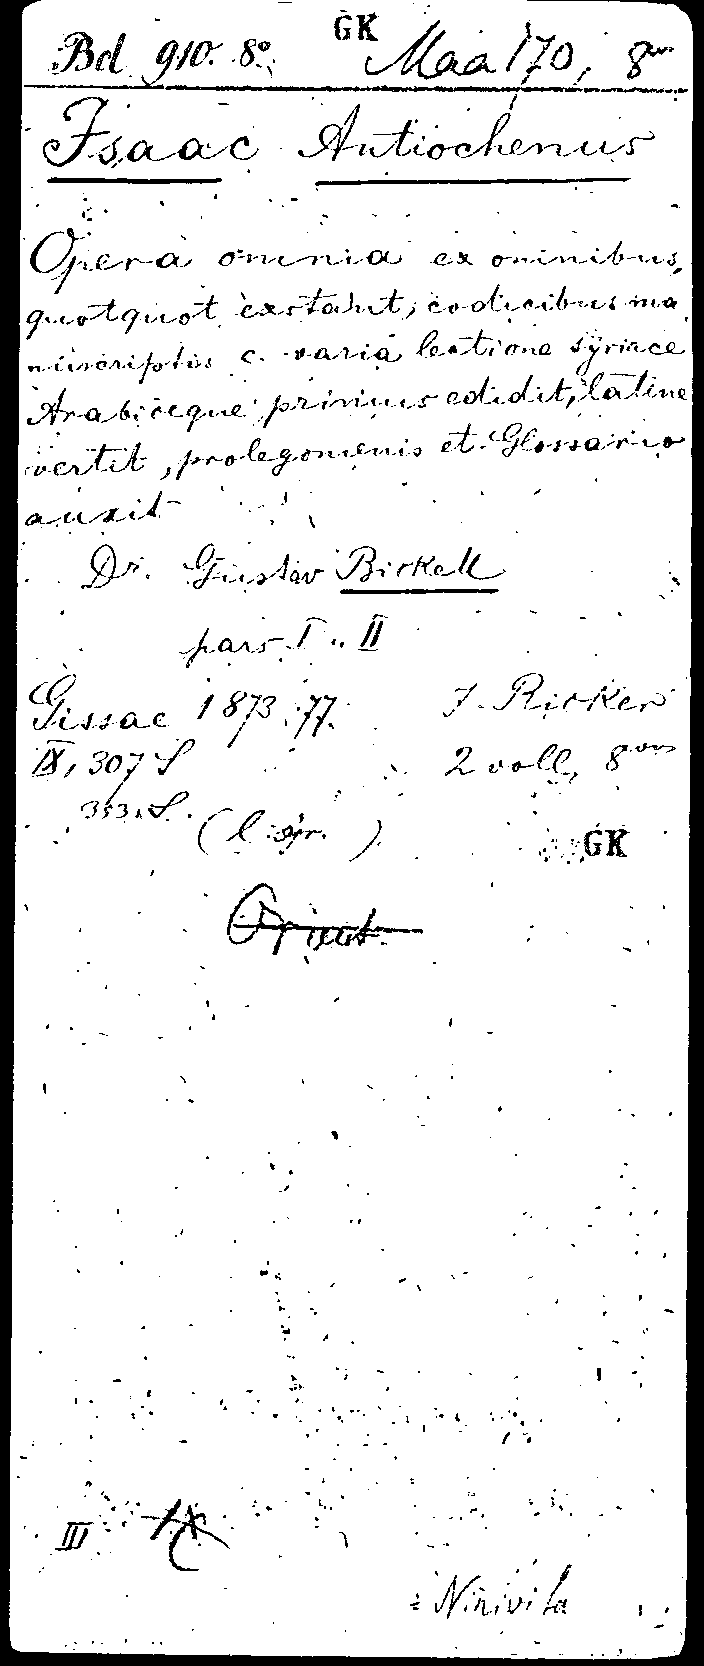 GK
Bd 910. 8°. Maa 170, 8vo
Isaac Antiochenus
Opera omnia ex omnibus,
quotquot exstant, codicibus ma
nuscriptis c. varia lectione syriace
Arabiceque primus edidit, latine
vertit, prolegomenis et Glossario
auxit
Dr. Gustav Bickell
pars I u. II
Gissae 1873. 77. J. Ricker
IX, 307 S 2 voll, 8vo
353. S. (l. syr. )
GK
Orient.
III
= Ninivita